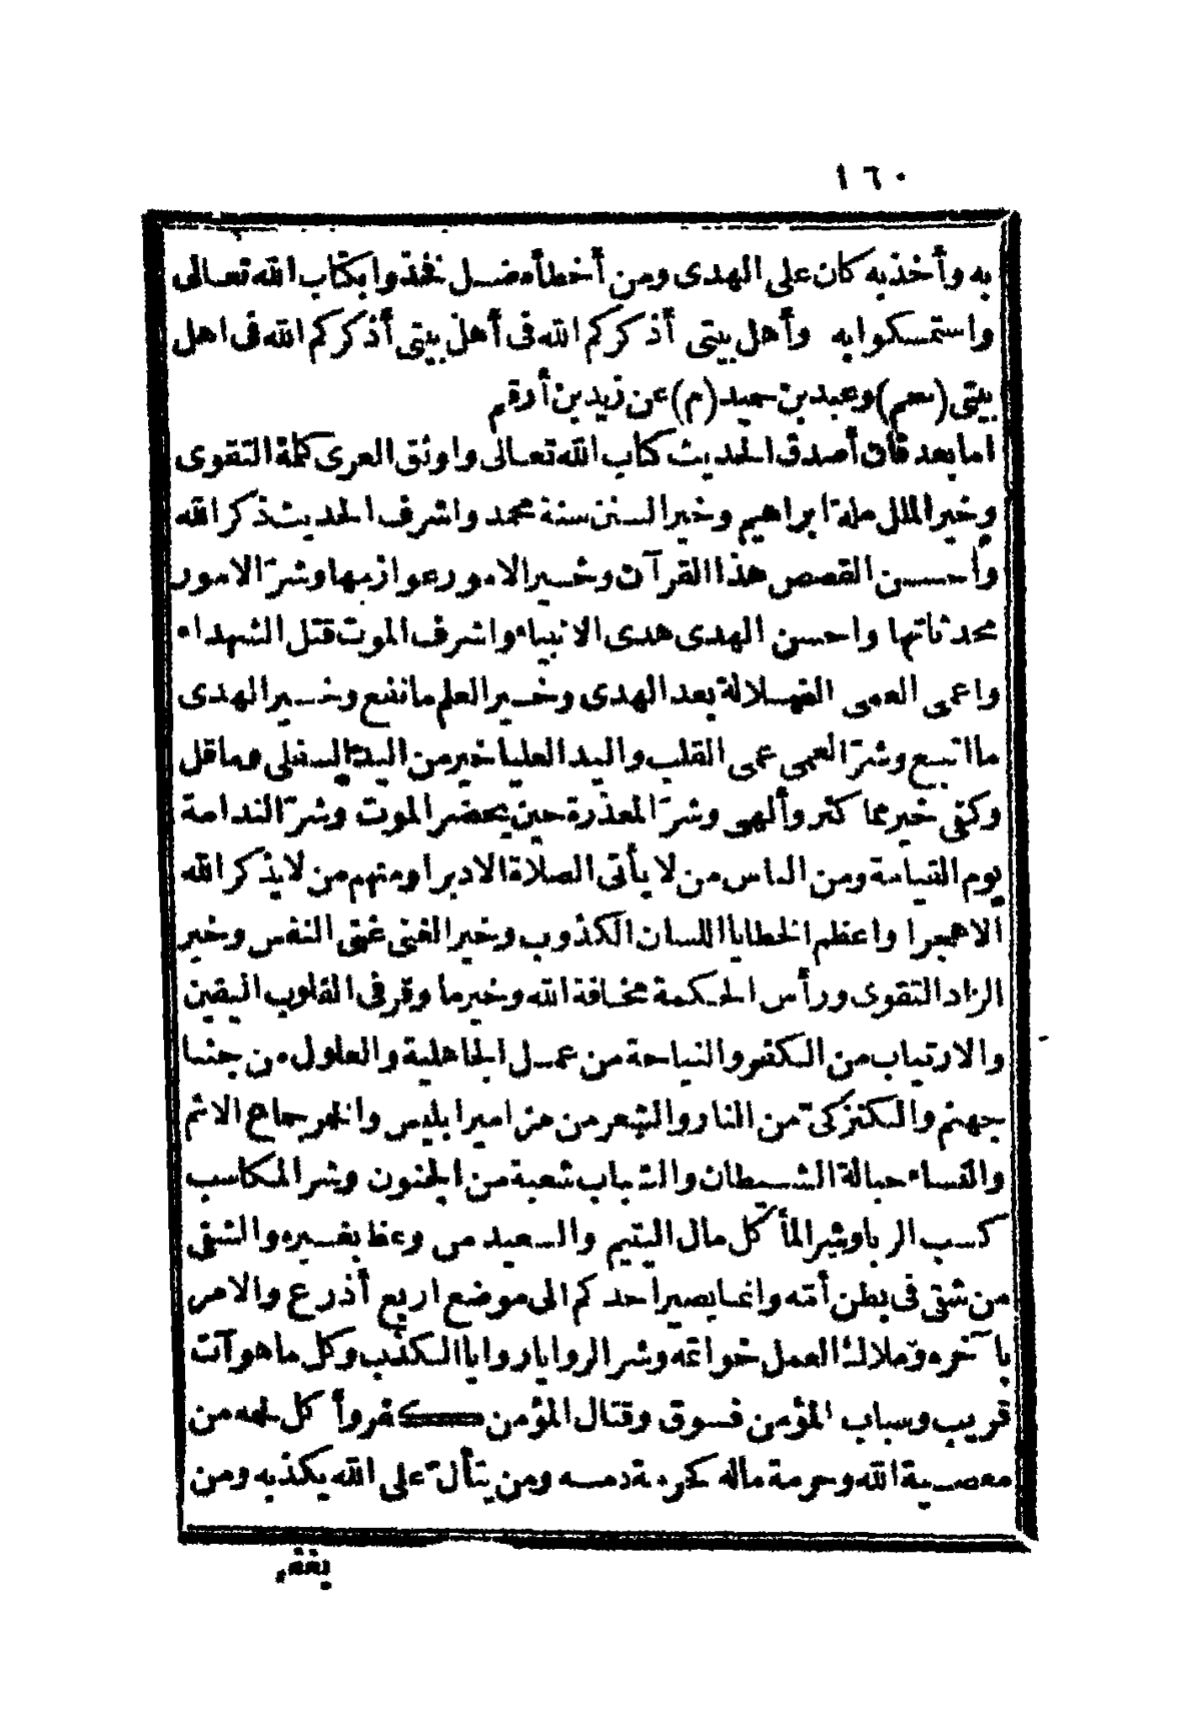 ١٦٠
به وأخذ به كان على الهدى ومن أخطأه ضل فخذوا بكتاب الله تعالى
واستمسكوا به وأهل بيتى أذكركم الله فى أهل بيتى أذكركم الله فى اهل
بيتى (حم) وعبد بن حميد (م) عن زيد بن أرقم
اما بعد فان أصدق الحديث كتاب الله تعالى واوثق العرى كلمة التقوى
وخير الملل ملة ابراهيم وخير السنن سنة محمد واشرف الحديث ذكر الله
وأحسن القصص هذا القرآن وخير الامور عوازمها وشرّ الامور
محدثاتها واحسن الهدى هدى الانبياء واشرف الموت قتل الشهداء
واعمى العمى الضلالة بعد الهدى وخير العلم ما نفع وخير الهدى
ما اتبع وشرّ العمى عمى القلب واليد العليا خير من اليد السفلى وما قل
وكفى خير مما كثر وألهى وشرّ المعذرة حين يحضر الموت وشرّ الندامة
يوم القيامة ومن الناس من لا يأتى الصلاة الا دبرا ومنهم من لا يذكر الله
الا هجرا واعظم الخطايا اللسان الكذوب وخير الغنى غنى النفس وخير
الزاد التقوى ورأس الحكمة مخافة الله وخير ما وقر فى القلوب اليقين
والارتياب من الكفر والنياحة من عمل الجاهلية والغلول من جثا
جهنم والكنز كىّ من النار والشعر من مزامير ابليس والخمر جماع الاثم
والنساء حبالة الشيطان والشباب شعبة من الجنون وشر المكاسب
كسب الربا وشر المأكل مال اليتيم والسعيد من وعظ بغيره والشقى
من شقى فى بطن أمّه وانما يصير احدكم الى موضع اربع أذرع والامر
بآخره وملاك العمل خواتمه وشر الروايا روايا الكذب وكل ما هو آت
قريب وسباب المؤمن فسوق وقتال المؤمن كفر وأكل لحمه من
معصية الله وحرمة ماله كحرمة دمه ومن يتألّ على الله يكذبه ومن
يغفر